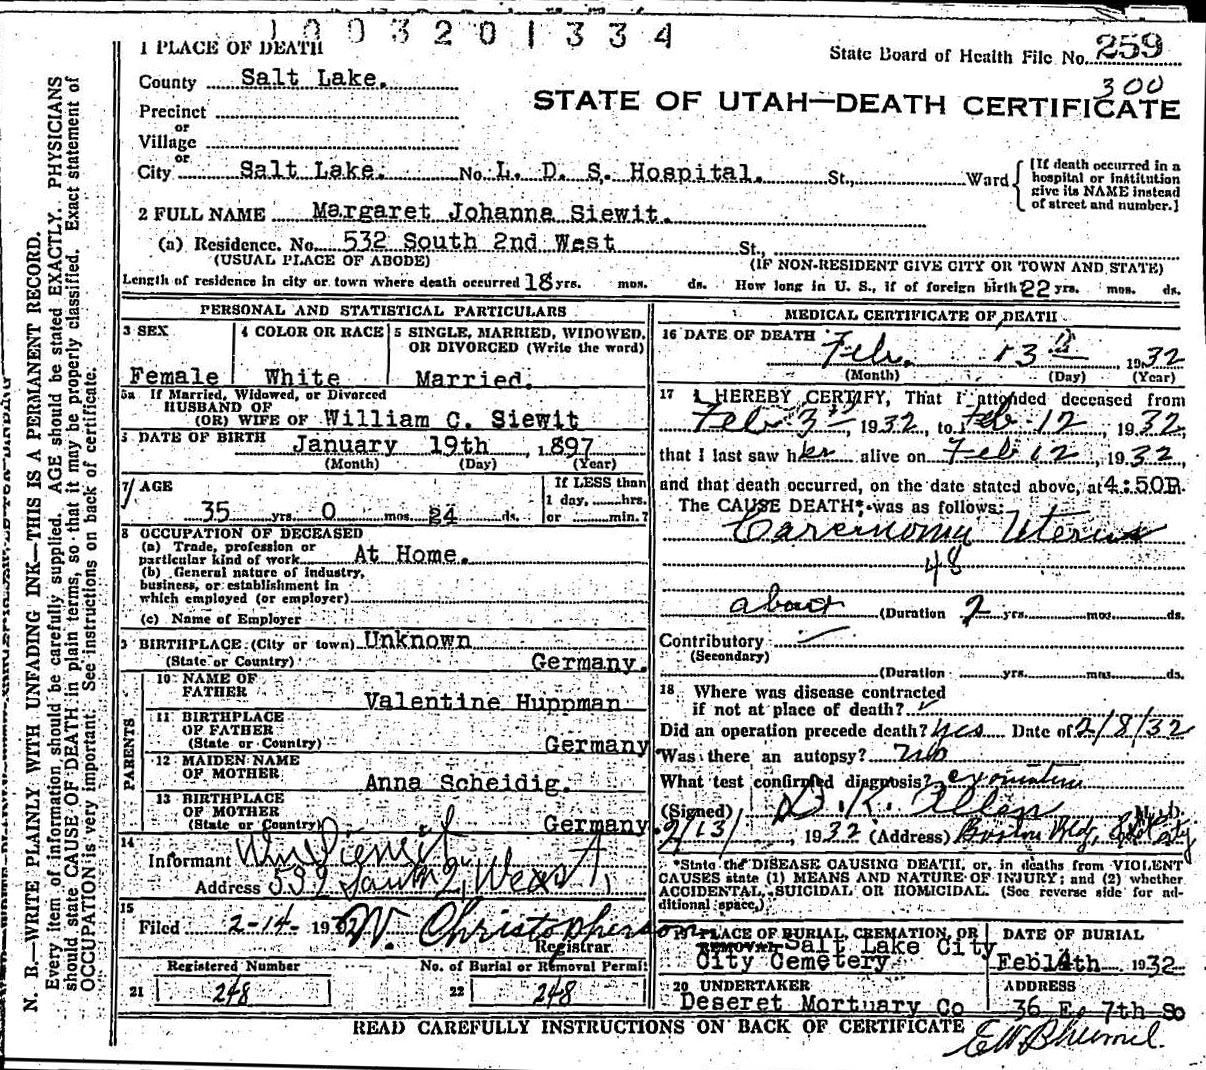 1003201334
1 PLACE OF DEATH
State Board of Health File No. 259
County Salt Lake.
300
STATE OF UTAH—DEATH CERTIFICATE
Precinct
or
Village
or
City Salt Lake. No. L. D. S. Hospital. St., Ward
[If death occurred in a
hospital or institution
give its NAME instead
of street and number.]
2 FULL NAME Margaret Johanna Siewit.
(a) Residence. No. 532 South 2nd West St.,
(USUAL PLACE OF ABODE) (IF NON-RESIDENT GIVE CITY OR TOWN AND STATE)
Length of residence in city or town where death occurred 18 yrs. mos. ds. How long in U. S., if of foreign birth 22 yrs. mos. ds.
PERSONAL AND STATISTICAL PARTICULARS
3 SEX
Female
4 COLOR OR RACE
White
5 SINGLE, MARRIED, WIDOWED,
OR DIVORCED (Write the word)
Married.
5a If Married, Widowed, or Divorced
HUSBAND OF
(OR) WIFE OF William C. Siewit
6 DATE OF BIRTH January 19th, 1897
(Month) (Day) (Year)
7 AGE
35 yrs. 0 mos. 24 ds.
If LESS than
1 day, hrs.
or min.?
8 OCCUPATION OF DECEASED
(a) Trade, profession or
particular kind of work At Home.
(b) General nature of industry,
business, or establishment in
which employed (or employer)
(c) Name of Employer
9 BIRTHPLACE (City or town) Unknown
(State or Country) Germany.
PARENTS
10 NAME OF
FATHER Valentine Huppman
11 BIRTHPLACE
OF FATHER
(State or Country) Germany
12 MAIDEN NAME
OF MOTHER Anna Scheidig.
13 BIRTHPLACE
OF MOTHER
(State or Country) Germany
14
Informant Wm Siewit
Address 532 South 2 West
15
Filed 2-14- 1932 W. Christopherson
Registrar
Registered Number
21 248
No. of Burial or Removal Permit
22 248
MEDICAL CERTIFICATE OF DEATH
16 DATE OF DEATH
Feb. 13th 1932
(Month) (Day) (Year)
17 I HEREBY CERTIFY, That I attended deceased from
Feb 3rd, 1932, to Feb 12, 1932,
that I last saw her alive on Feb 12, 1932,
and that death occurred, on the date stated above, at 4:50P.
The CAUSE DEATH* was as follows:
Carcinoma Uterus
48
about (Duration 2 yrs. mos. ds.
Contributory
(Secondary)
(Duration yrs. mos. ds.
18 Where was disease contracted
if not at place of death?
Did an operation precede death? yes Date of 2/8/32
Was there an autopsy? no
What test confirmed diagnosis?
(Signed) D. K. Allen M.D.
2/13/, 1932 (Address) Boston Bldg,
*State the DISEASE CAUSING DEATH, or, in deaths from VIOLENT
CAUSES state (1) MEANS AND NATURE OF INJURY; and (2) whether
ACCIDENTAL, SUICIDAL OR HOMICIDAL. (See reverse side for ad-
ditional space.)
19 PLACE OF BURIAL, CREMATION, OR
REMOVAL Salt Lake City
City Cemetery
DATE OF BURIAL
Feb14th 1932
20 UNDERTAKER
Deseret Mortuary Co
ADDRESS
36 E. 7th So
READ CAREFULLY INSTRUCTIONS ON BACK OF CERTIFICATE
N. B.—WRITE PLAINLY WITH UNFADING INK—THIS IS A PERMANENT RECORD.
Every item of information should be carefully supplied. AGE should be stated EXACTLY. PHYSICIANS
should state CAUSE OF DEATH in plain terms, so that it may be properly classified. Exact statement of
OCCUPATION is very important. See instructions on back of certificate.